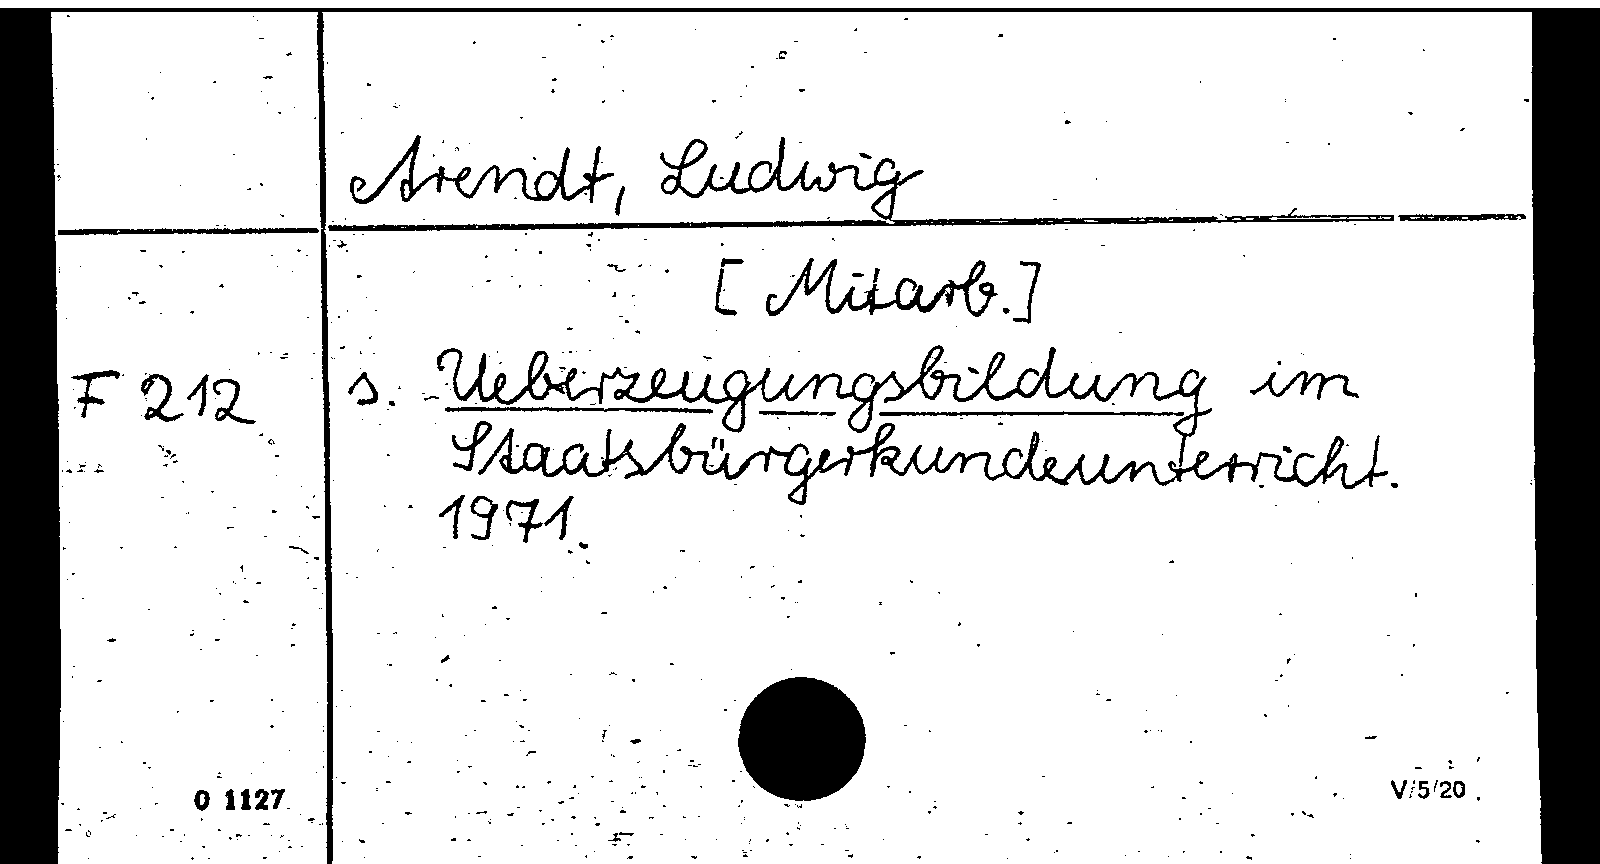 Arendt, Ludwig
[Mitarb.]
F 212 s. Ueberzeugungsbildung im
Staatsbürgerkundeunterricht.
1971.
O 1127 V/5/20